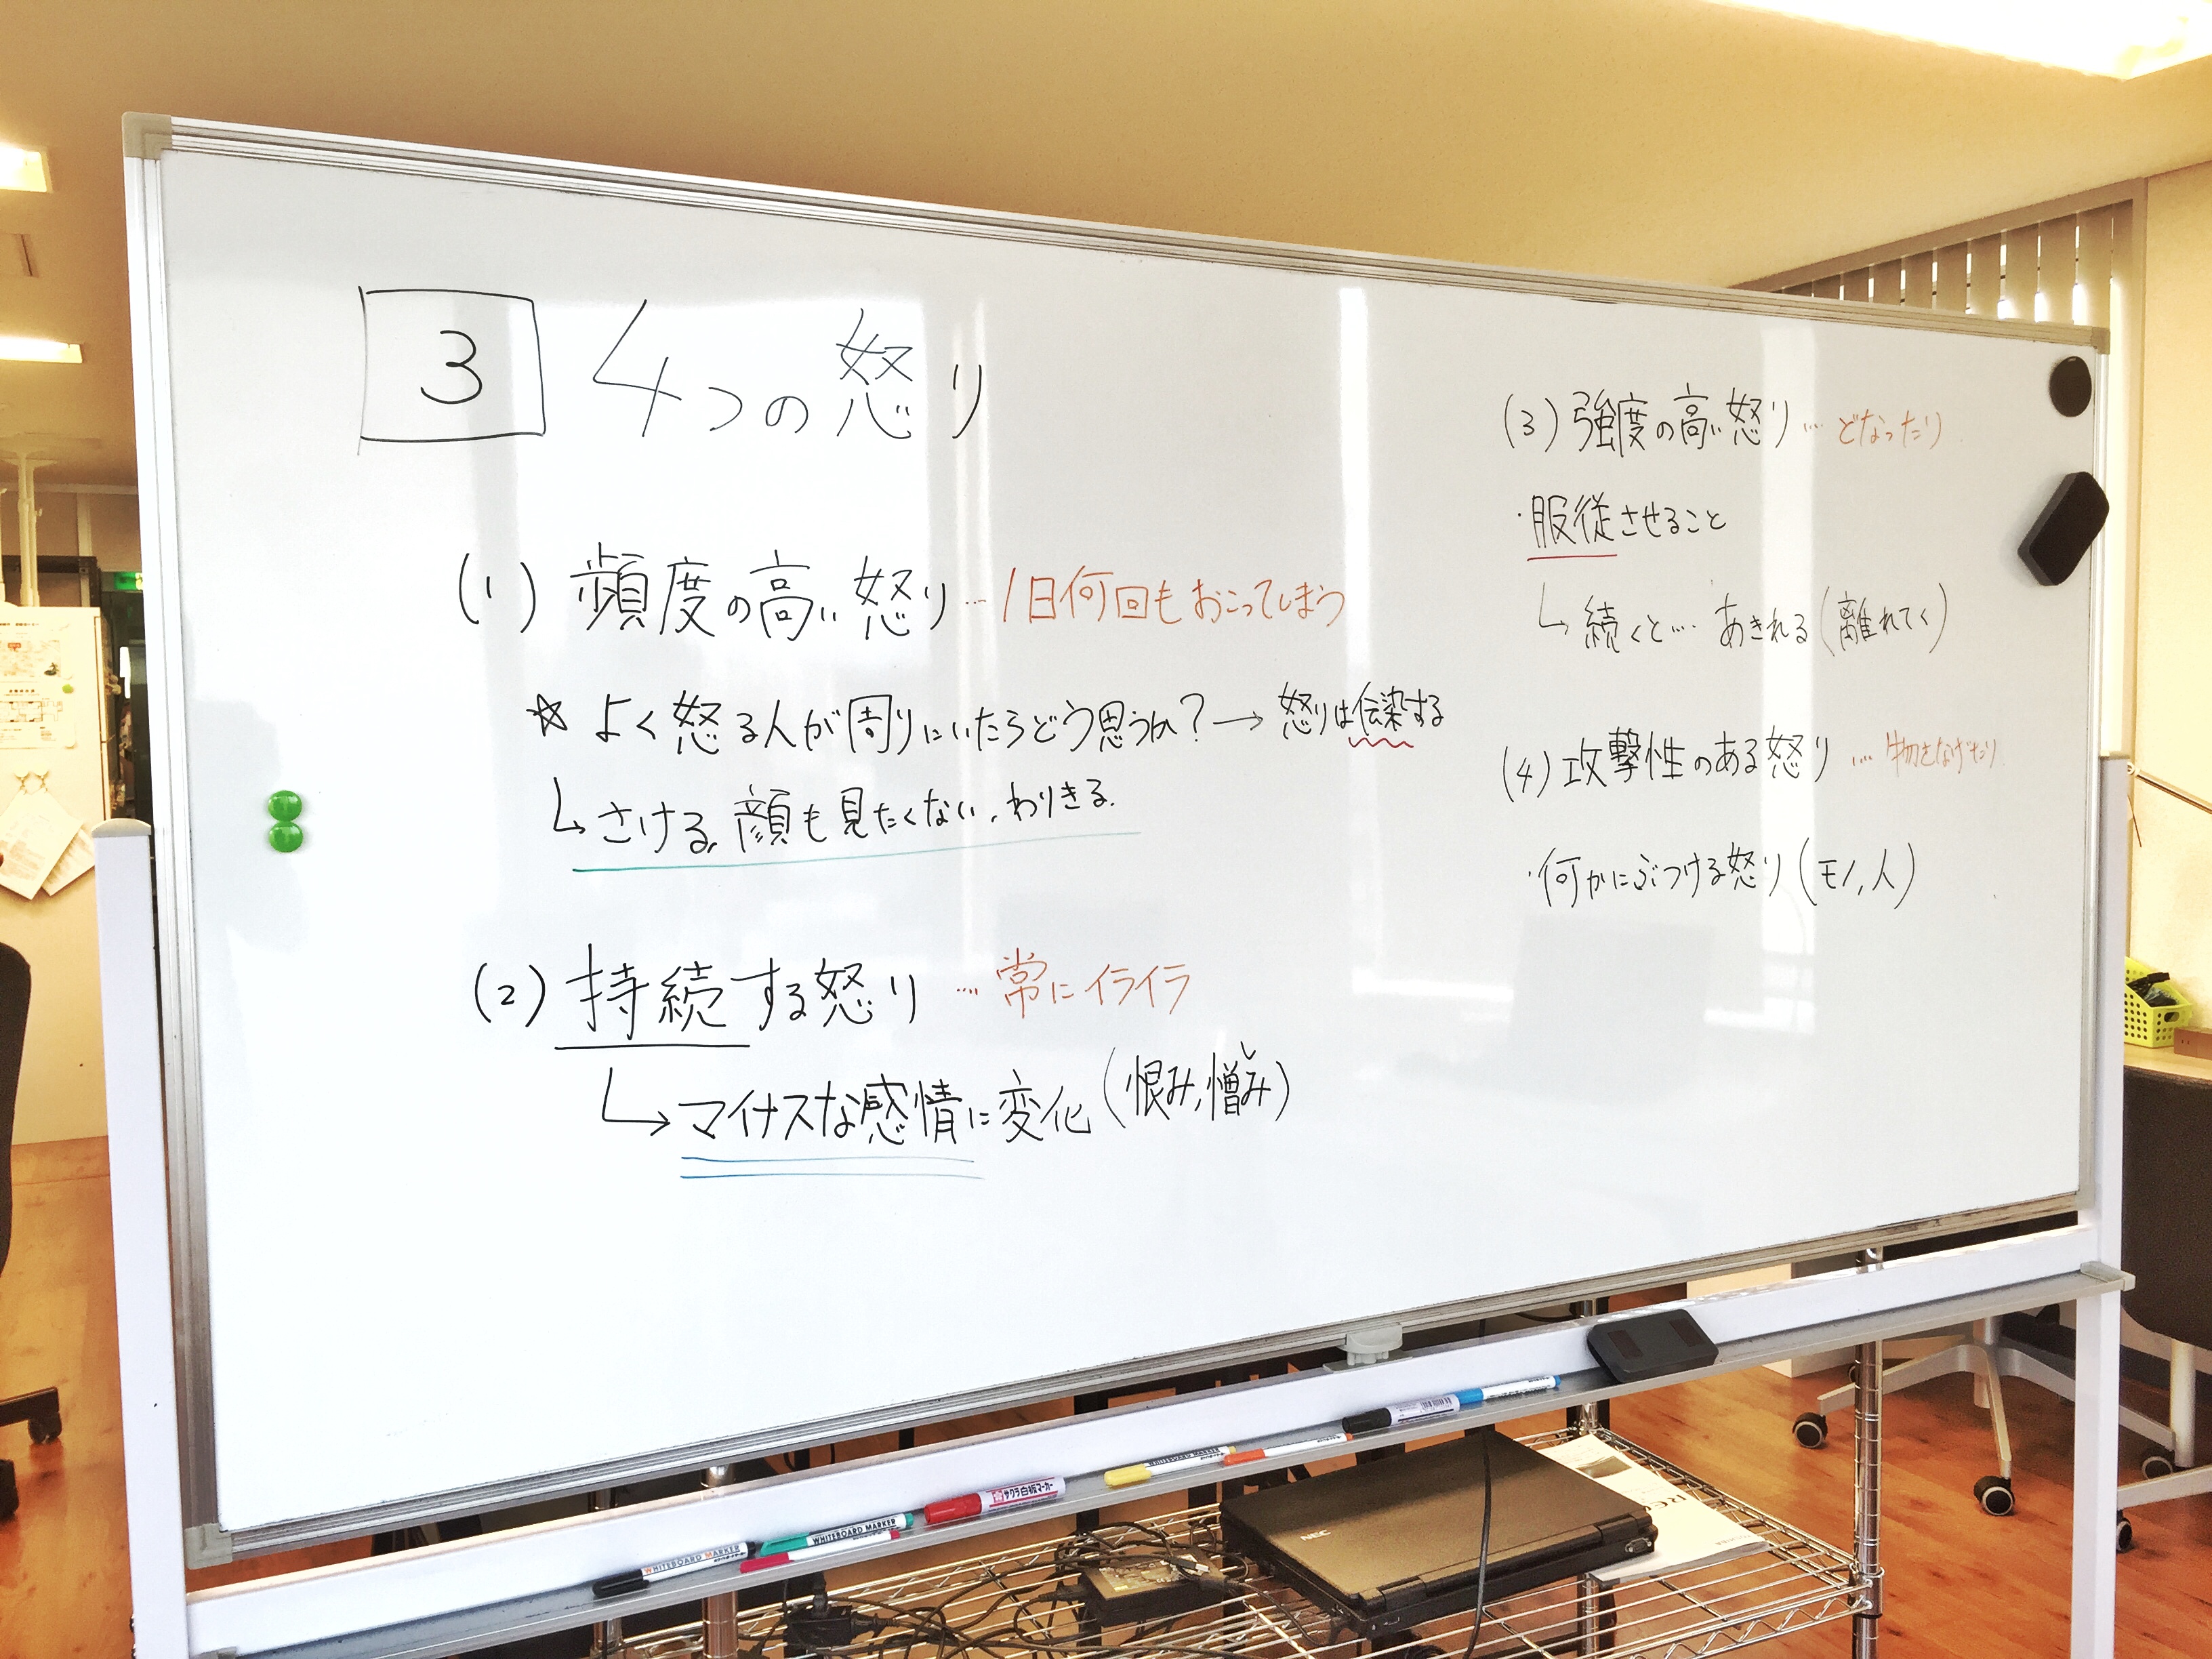 3 4つの怒り
(1) 頻度の高い怒り…1日何回もおこってしまう
☆ よく怒る人が周りにいたらどう思うか?→ 怒りは伝染する
↳ さける、顔も見たくない、わりきる.
(2) 持続する怒り …常にイライラ
↳ マイナスな感情に変化 (恨み,憎しみ)
(3) 強度の高い怒り…どなったり
・服従させること
↳ 続くと… あきれる (離れてく)
(4) 攻撃性のある怒り …物をなげたり
・何かにぶつける怒り (モノ,人)
WHITEBOARD MARKER
WHITEBOARD MARKER
サクラ白板マーカー
WHITEBOARD MARKER
NEC